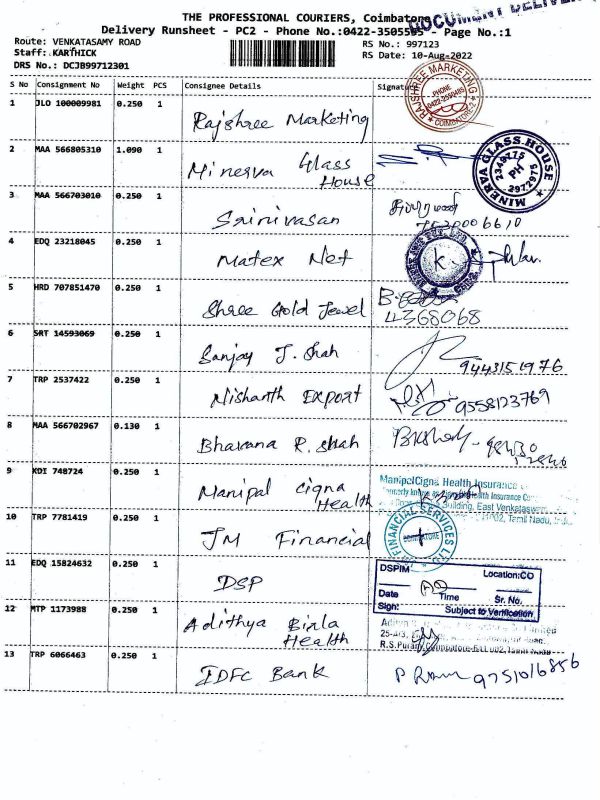 THE PROFESSIONAL COURIERS, Coimbatore
DOCUMENT
Delivery Runsheet - PC2 - Phone No.:0422-3505505 - Page No.:1
Route: VENKATASAMY ROAD
RS No.: 997123
Staff: KARTHICK
RS Date: 10-Aug-2022
DRS No.: DCJB99712301
S No Consignment No Weight PCS Consignee Details Signature
1 JLO 100009981 0.250 1 Rajshree Marketing
RAJSHREE MARKETING
PHONE
COIMBATORE-2
2 MAA 566805310 1.090 1 Minerva Glass House
MINERVA GLASS HOUSE
2349775
PH
2972975
3 MAA 566703010 0.250 1 Srinivasan
4 EDQ 23218045 0.250 1 Matex Net
5 HRD 707851470 0.250 1 Shree Gold Jewel
4368068
6 SRT 14593069 0.250 1 Sanjay J. Shah
9443151976
7 TRP 2537422 0.250 1 Nishanth Export
9558123769
8 MAA 566702967 0.130 1 Bhavana R. Shah
9 KDI 748724 0.250 1 Manipal Cigna Health
ManipalCigna Health Insurance
Health Insurance
Building, East Venkataswamy
Tamil Nadu
10 TRP 7781419 0.250 1 JM Financial
FINANCIAL SERVICES LTD
COIMBATORE
11 EDQ 15824632 0.250 1 DSP
DSPIM Location:CO
Date Time Sr. No.
Sign: Subject to Verification
12 MTP 1173988 0.250 1 Adithya Birla Health
R.S.Puram, Coimbatore-641 002, Tamil Nadu
13 TRP 6066463 0.250 1 IDFC Bank
P Ram 9751016856